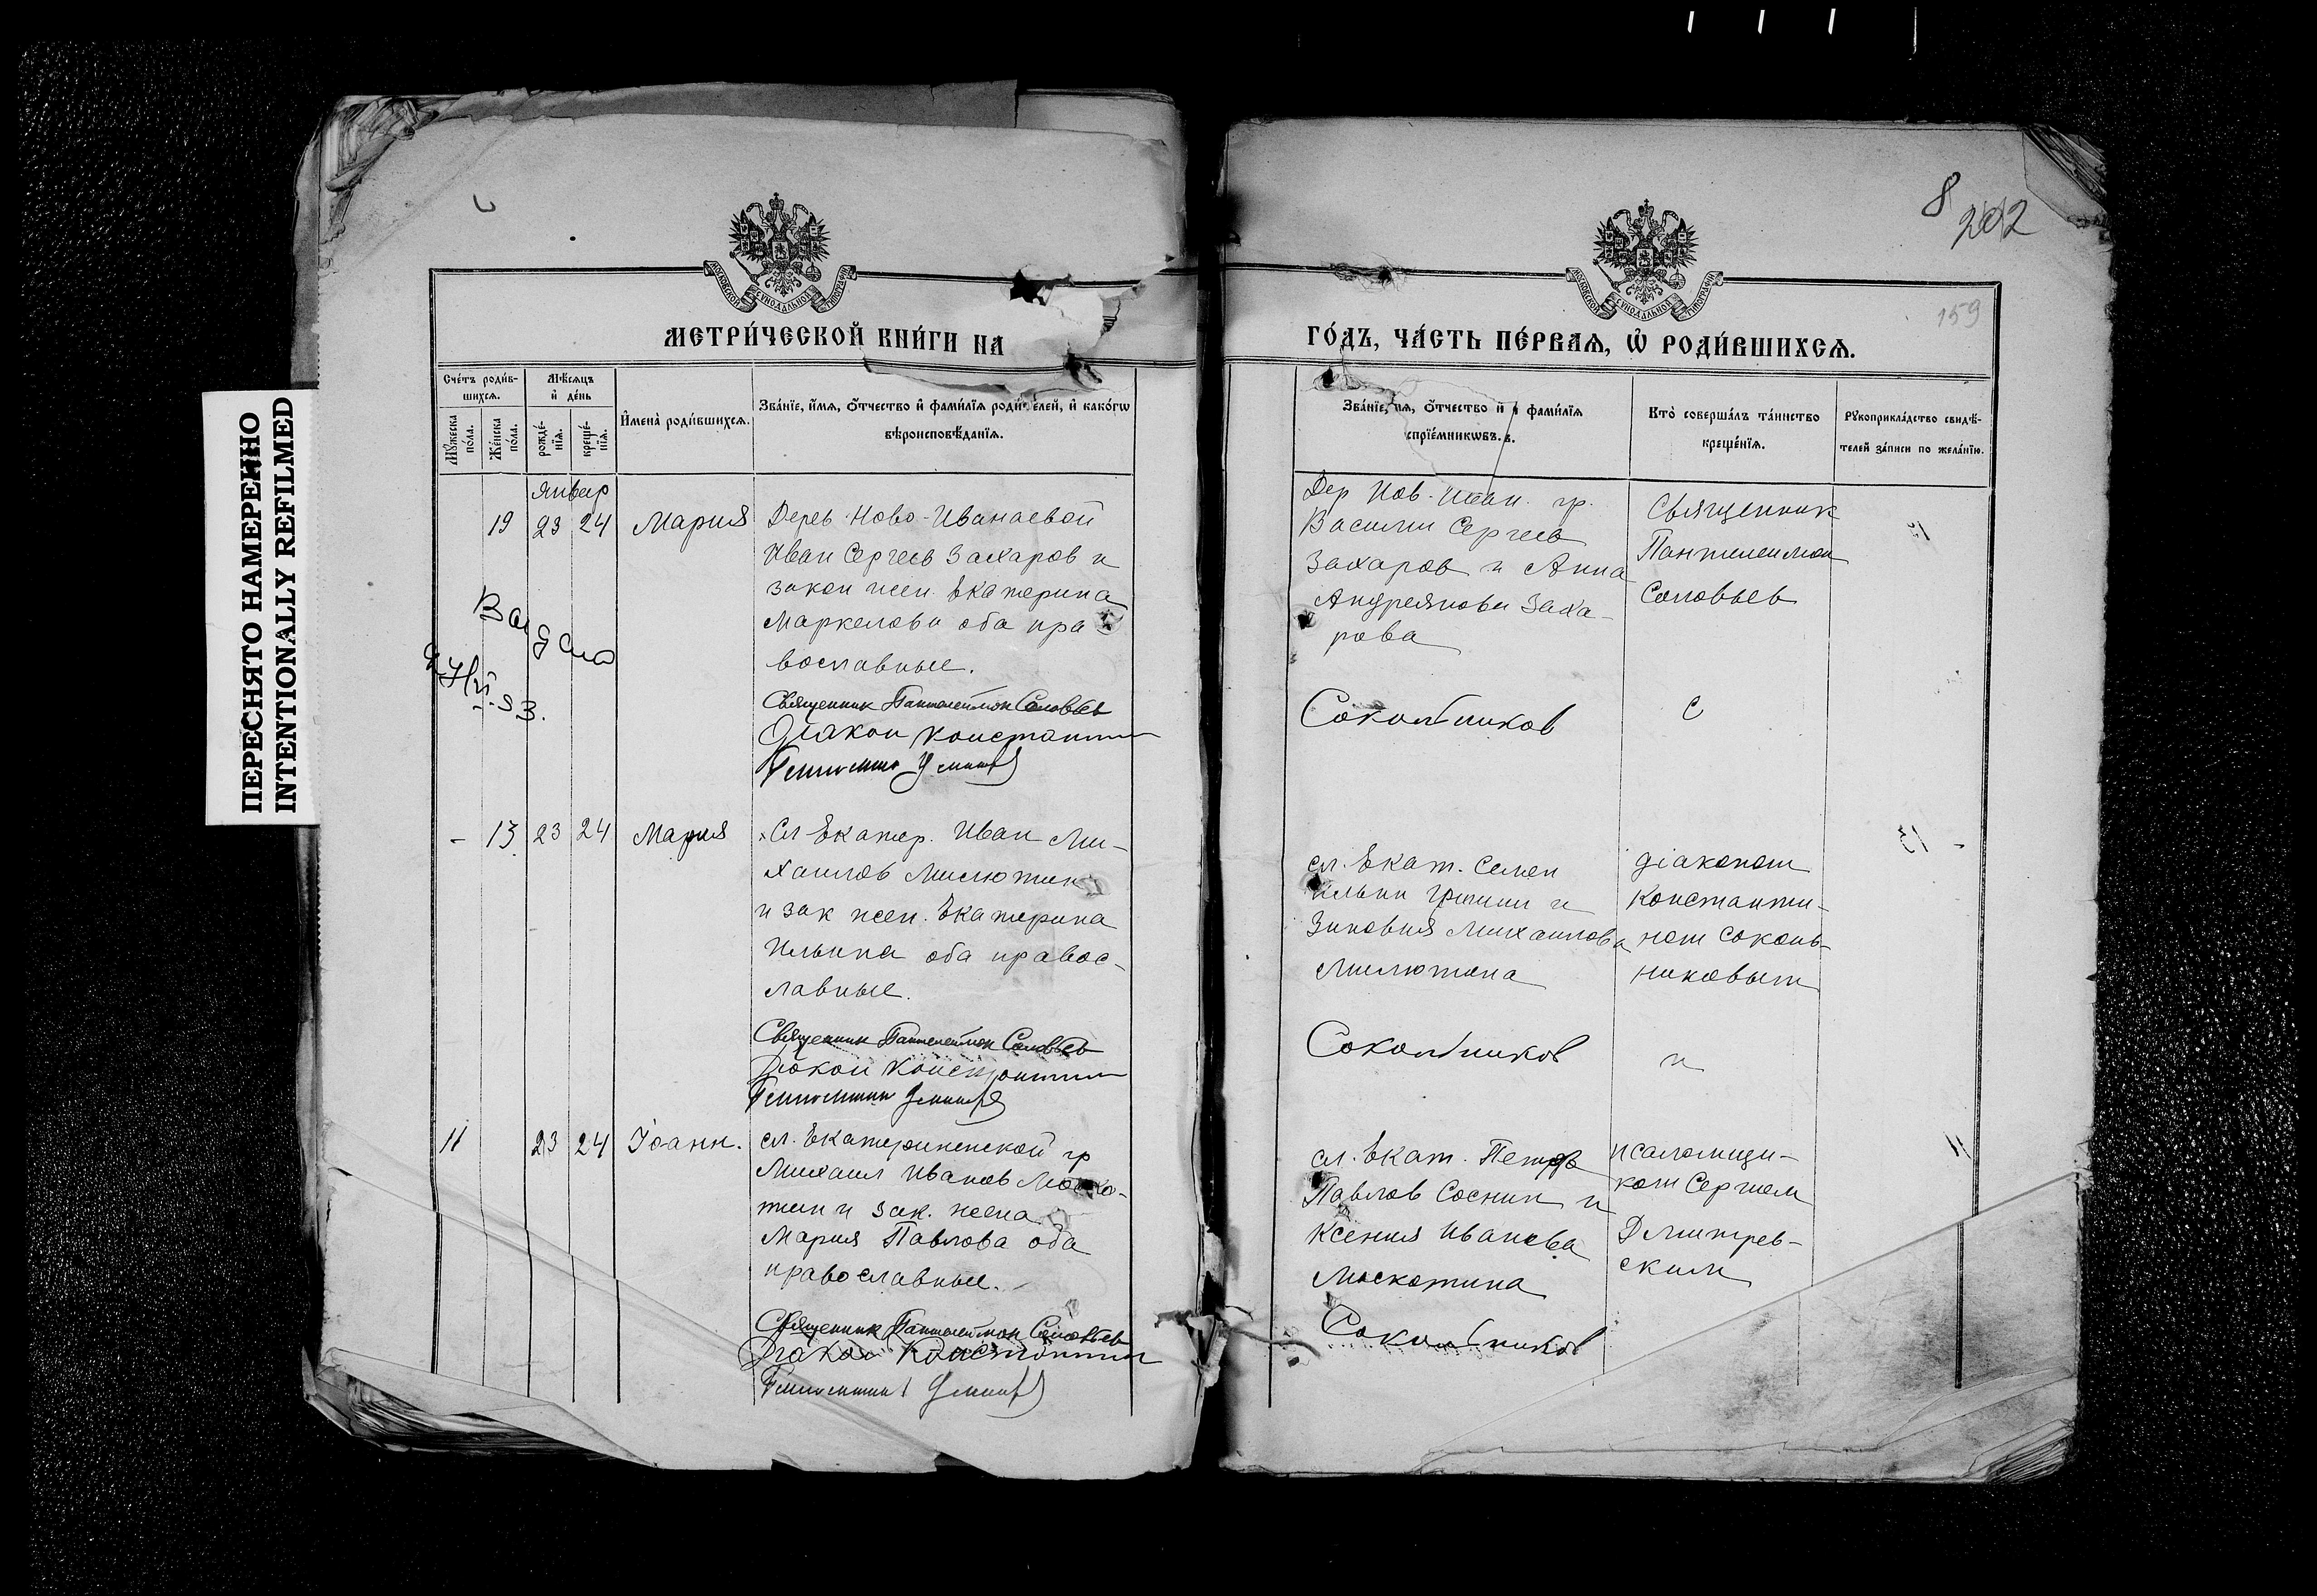 ПЕРЕСНЯТО НАМЕРЕННО
INTENTIONALLY REFILMED
8
202
159
МОСКОВСКОЙ СУНОДАЛЬНОЙ ТИПОГРАФІИ
МОСКОВСКОЙ СУНОДАЛЬНОЙ ТИПОГРАФІИ
МЕТРИ́ЧЕСКОЙ КНИ́ГИ НА
ГО́ДЪ, ЧА́СТЬ ПЕ́РВАЯ, Ѡ҆ РОДИ́ВШИХСЯ.
Сче́тъ роди́в-
шихся.
Мꙋ́жеска
по́ла.
Же́нска
по́ла.
Мѣ́сяцъ
и҆ де́нь
рожде́-
нїѧ.
креще́-
нїѧ.
И҆мена̀ роди́вшихся.
Зва́нїе, и҆́мя, ѻ҆́тчество и҆ фами́лїя роди́телей, и҆ како́гѡ
вѣроисповѣ́данїя.
Зва́нїе, и҆́мя, ѻ҆́тчество и҆ фами́лїя
спрїе́мникѡвъ.
Кто̀ соверша́лъ та́инство
креще́нїя.
Рꙋкоприкла́дство свидѣ́-
телей за́писи по жела́нїю.
Январ
19 23 24 Мария
Дерев Ново-Иванаевой
Иван Сергеев Захаров и
закон жен. Екатерина
Маркелова оба пра
вославные.
Священник Пантелеимон Соловьев
Діакон Константин
Дер Нов-Иван. гр.
Василии Сергеев
Захаров и Анна
Андреянова Заха-
рова
Сокольников
Священник
Пантелеимон
Соловьев
С
- 13 23 24 Мария
Сл Екатер. Иван Ми-
хаилов Милютин
и зак жен. Екатерина
Ильина оба правос-
лавные.
Священник Пантелеимон Соловьев
Діакон Константин
сл. Екат. Семен
Ильин и
Зиновия Михаилова
Милютина
Сокольников
діаконом
Константи-
ном Соколь-
никовым
и
11 23 24 Іоанн.
сл. Екатерининской гр
Михаил Иванов Моско-
тин и зак. жена
Мария Павлова оба
православные.
Священник Пантелеимон Соловьев
Діакон Константин
сл. Екат. Петр
Павлов Соснин и
Ксения Иванова
Москотина
Сокольников
псаломщи-
ком Сергием
Дмитрев-
ским